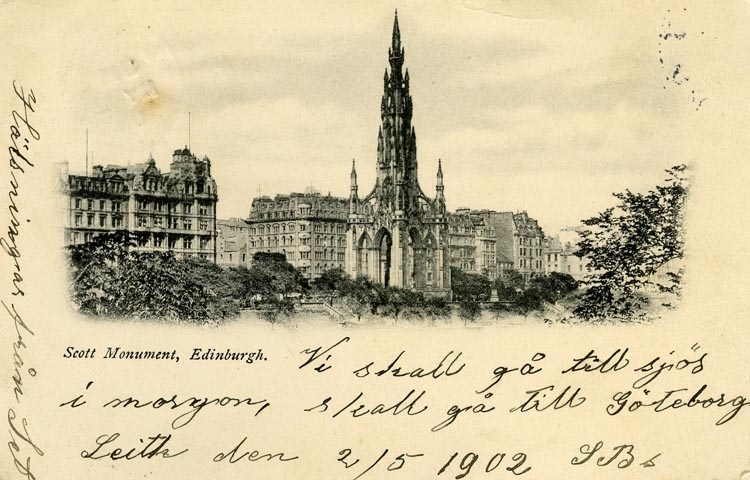 Hälsningar från
Scott Monument, Edinburgh.
Vi skall gå till sjös
i morgon, skall gå till Göteborg
Leith den 2/5 1902